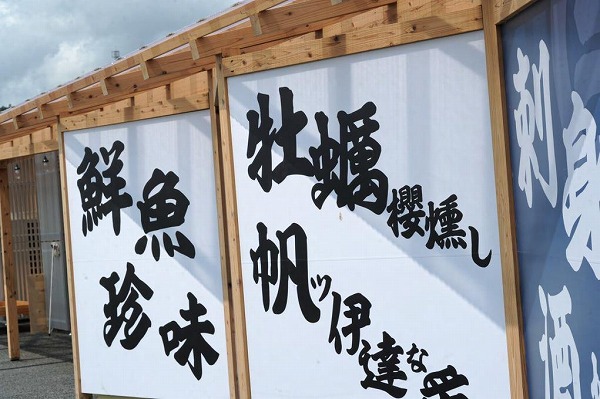 鮮魚
珍味
牡蠣櫻燻し
帆ッ伊達な
刺身
酒